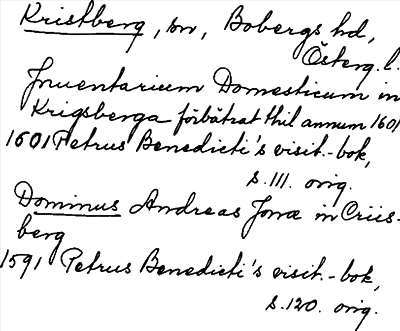 Kristberg, sn, Bobergs hd,
Österg. l.
Inuentarium Domesticum in
Krigsberga förbätrat thil annum 1601
1601 Petrus Benedicti's visit.-bok,
s.111. orig.
Dominus Andreas Jonæ in Criis-
berg
1591 Petrus Benedicti's visit.-bok,
s.120. orig.